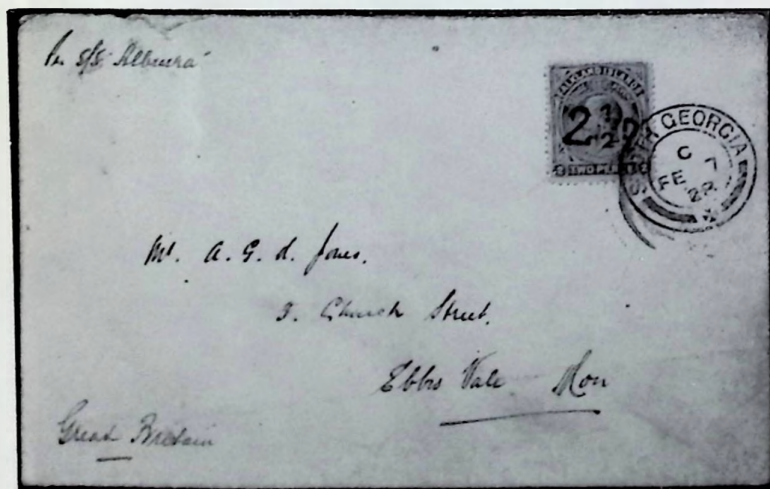 Per s/s "Albuera"
FALKLAND ISLANDS
2½D
TWO PENCE
SOUTH GEORGIA
C
FE 7
28
Mr. A. G. d. Jones.
Church Street.
Ebbw Vale Mon
Great Britain